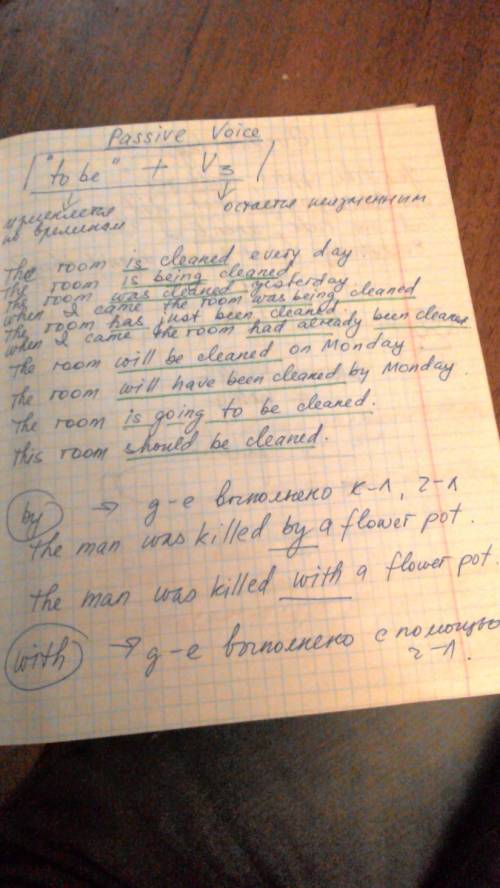 Passive Voice
"to be" + V3
изменяется остается неизменным
по временам
The room is cleaned every day
The room is being cleaned
The room was cleaned yesterday
when I came the room was being cleaned
The room has just been cleaned
when I came the room had already been cleaned
The room will be cleaned on Monday
The room will have been cleaned by Monday.
The room is going to be cleaned.
This room should be cleaned.
by → д-е выполнено к-л, ч-л
The man was killed by a flower pot.
The man was killed with a flower pot.
with → д-е выполнено с помощью
ч-л.